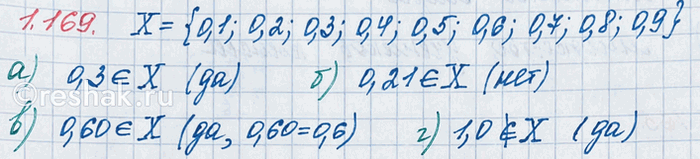 1.169. X = {0,1; 0,2; 0,3; 0,4; 0,5; 0,6; 0,7; 0,8; 0,9}
а) 0,3 ∈ X (да) б) 0,21 ∈ X (нет)
в) 0,60 ∈ X (да, 0,60=0,6) г) 1,0 ∉ X (да)
©reshak.ru